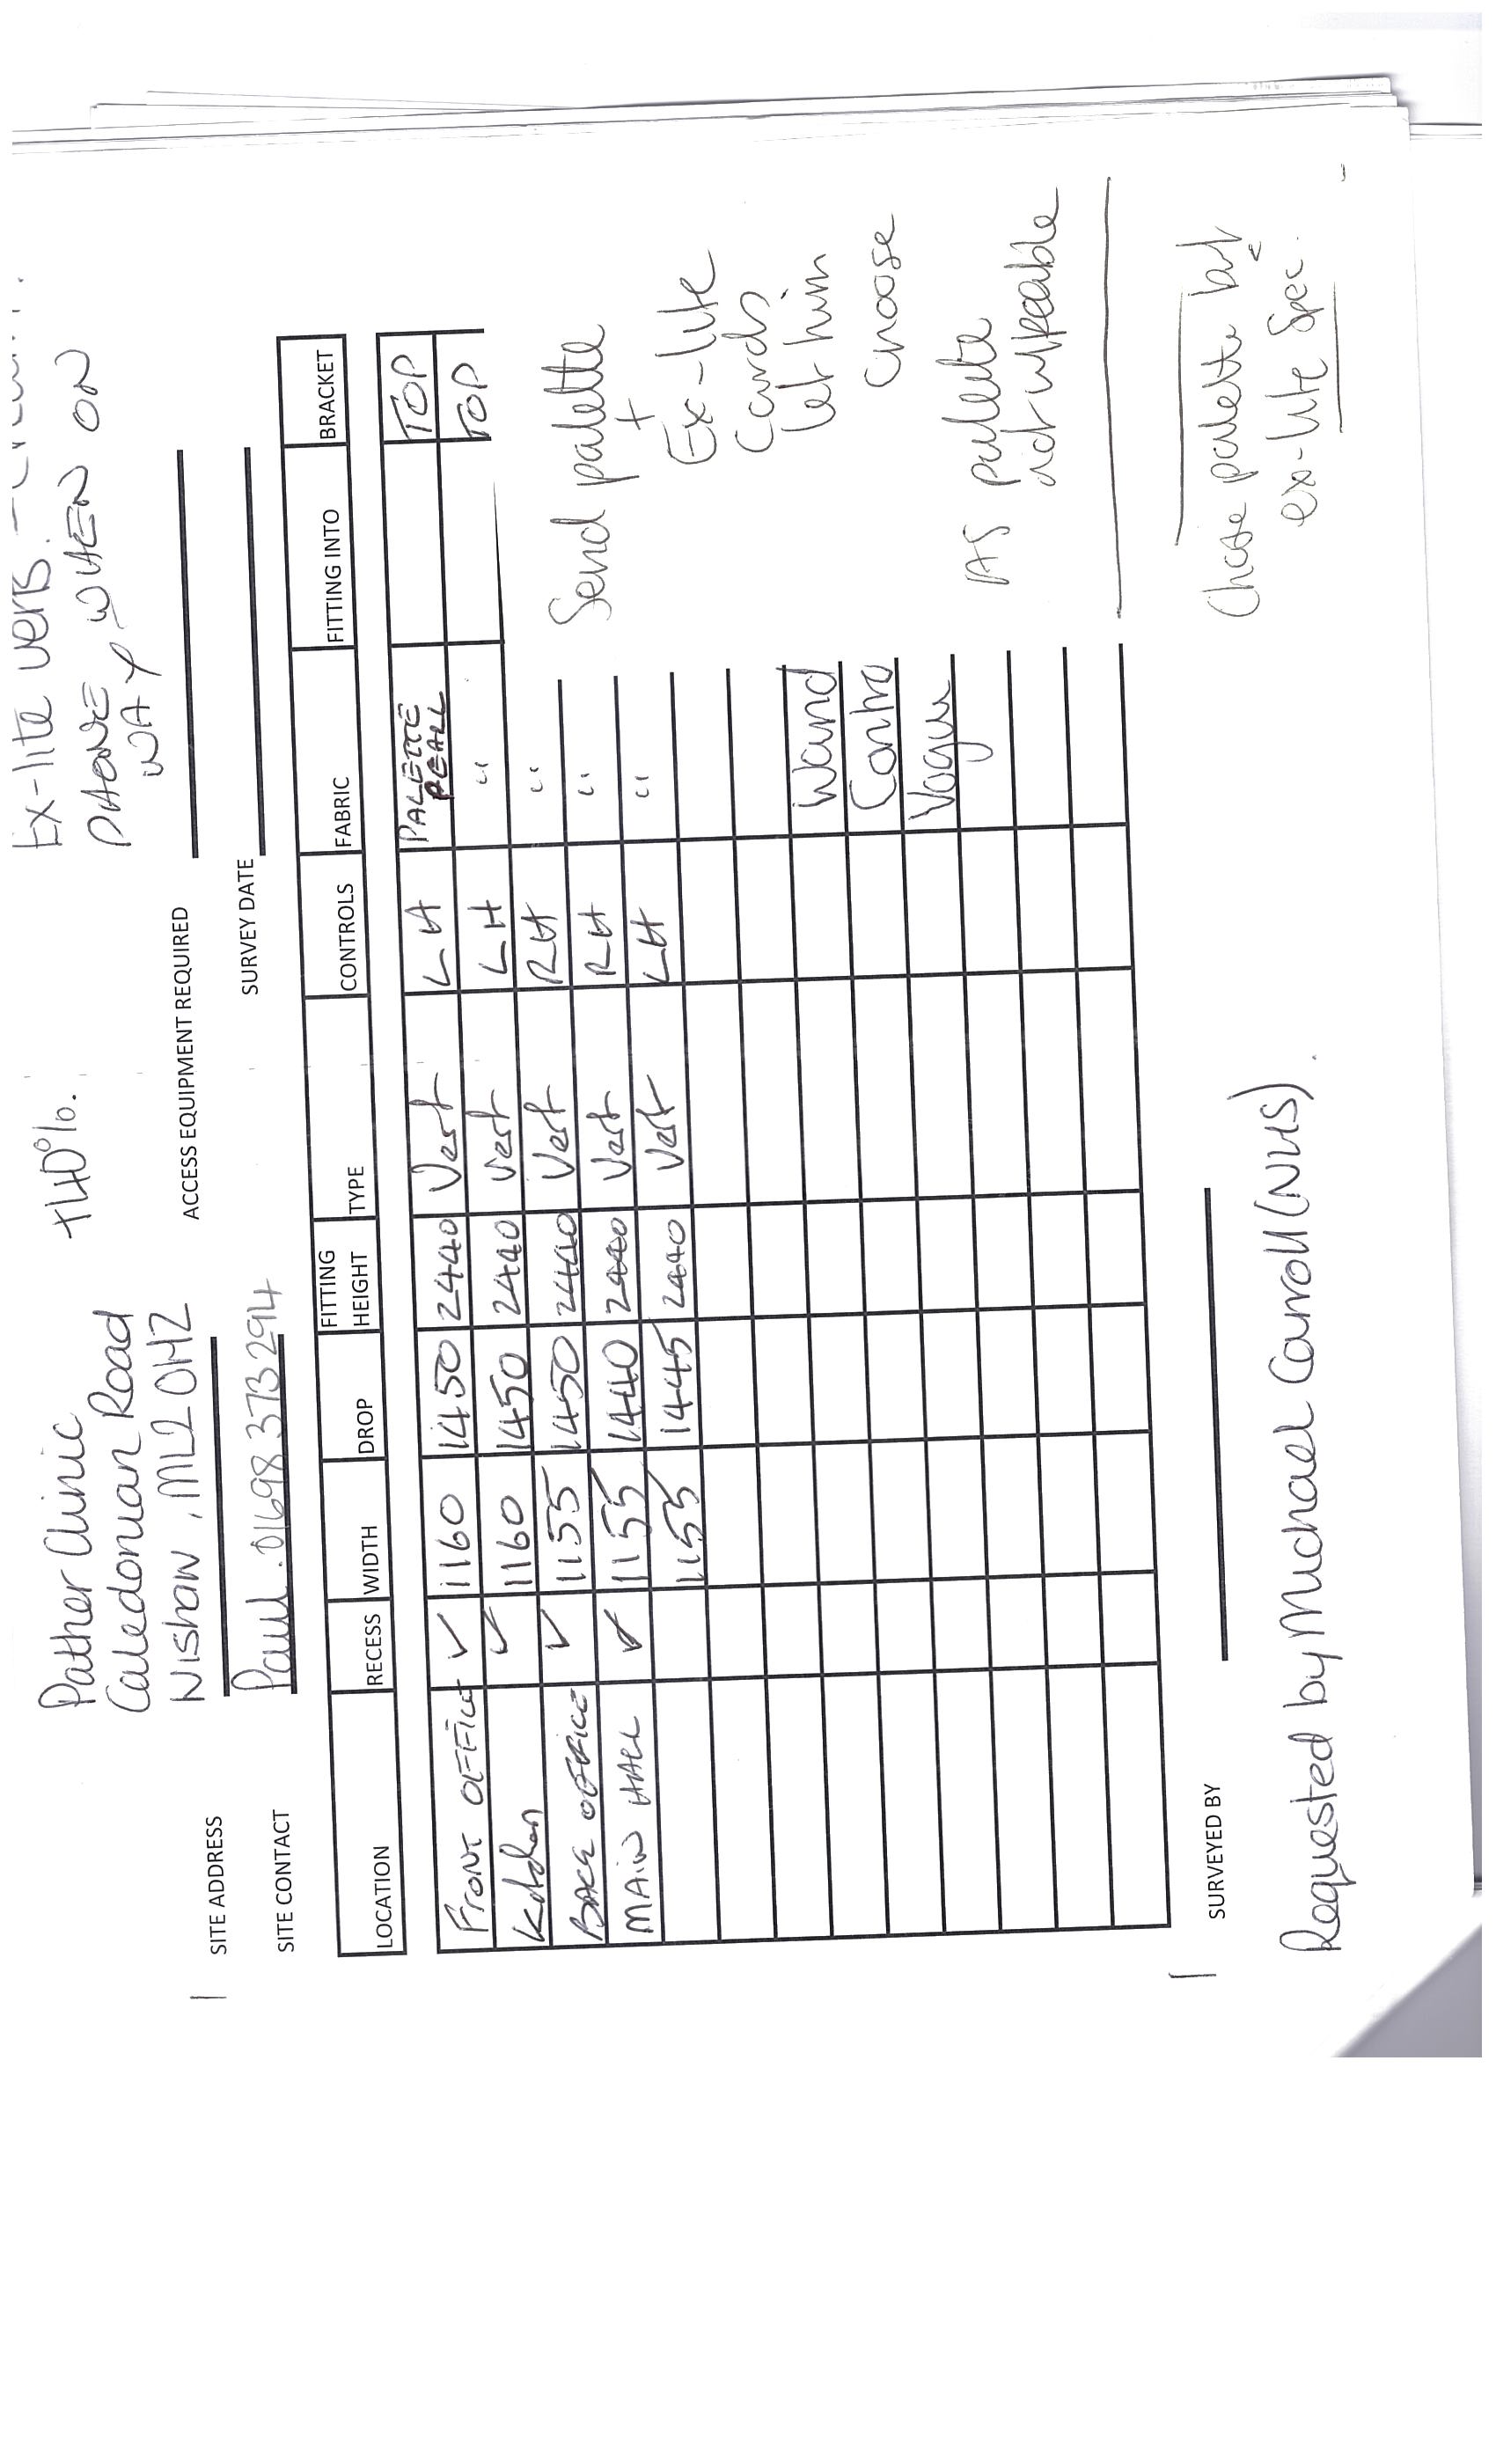 Ex-lite verts. -
PHONE, WHEN ON
WAY
Pather Clinic +40%.
Caledonian Road
Wishaw, ML2 0HZ
SITE ADDRESS ACCESS EQUIPMENT REQUIRED
Paul. 01698 373294
SITE CONTACT SURVEY DATE
LOCATION RECESS WIDTH DROP FITTING HEIGHT TYPE CONTROLS FABRIC FITTING INTO BRACKET
FRONT OFFICE ✓ 1160 1450 2440 Vert LH PALETTE PEARL TOP
Kitchen ✓ 1160 1450 2440 Vert LH " TOP
BACK OFFICE ✓ 1155 1450 2440 Vert RH "
MAIN HALL ✓ 1155 1440 2440 Vert RH "
1155 1445 2440 Vert LH "
Send palette
+
Ex-lite
Cards
let him
choose
Wand
Control
Vogue
AS palette
not wipeable
Chose palette but
ex-lite Spec.
SURVEYED BY
Requested by Michael Carroll (NHS).